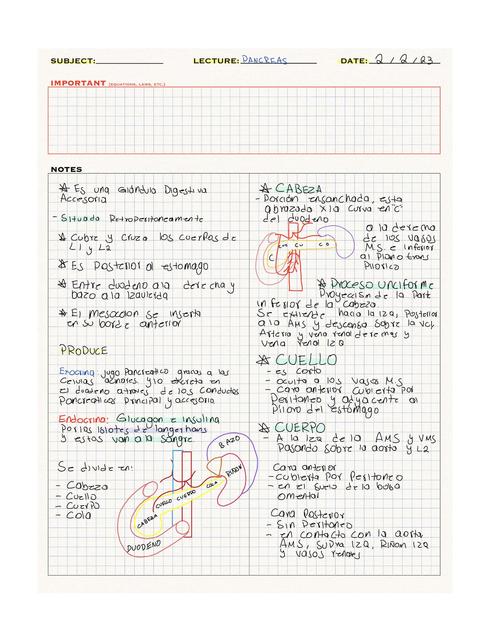 SUBJECT:
LECTURE: PANCREAS
DATE: 2/2/23
IMPORTANT (EQUATIONS, LAWS, ETC.)
NOTES
Es una Glándula Digestiva
Accesoria
- Situada Retroperitoneamente
Cubre y Cruza los cuerpos de
L1 y L2
Es Posterior al estomago
Entre duodeno a la derecha y
bazo a la izquierda
El mesocolon se inserta
en su borde anterior
PRODUCE
Exocrina: jugo Pancreatico gracias a las
Celulas acinares y lo excreta en
el duodeno atraves de los conductos
Pancreaticos Principal y accesorio
Endocrina: Glucagon e insulina
Por los islotes de langerhans
y estas van a la sangre
Se divide en:
- Cabeza
- Cuello
- Cuerpo
- Cola
BAZO
RIÑON
COLA
CUERPO
CUELLO
CABEZA
DUODENO
CABEZA
- Porción ensanchada, esta
abrazada x la curva en "C"
del duodeno
a la derecha
de los vasos
M.S. e inferior
al Plano trans
Pilorico
C
CU
CO
Proceso Unciforme
Proyección de la Part
inferior de la Cabeza
Se extiende hacia la IZQ, Posterior
a la AMS y descansa sobre la VCI,
Arteria y vena renal derechas y
vena renal IZQ
CUELLO
- es corto
- oculta a los vasos M.S
- Cara anterior cubierta por
Peritoneo y adyacente al
Piloro del estómago
CUERPO
- A la IZQ de la AMS y VMS
Pasando sobre la aorta y L2
Cara anterior
- cubierta Por Peritoneo
- en el suelo de la bolsa
omental
Cara Posterior
- Sin Peritoneo
- en contacto con la aorta
AMS, SUPRA IZQ, Riñon IZQ
y vasos renales